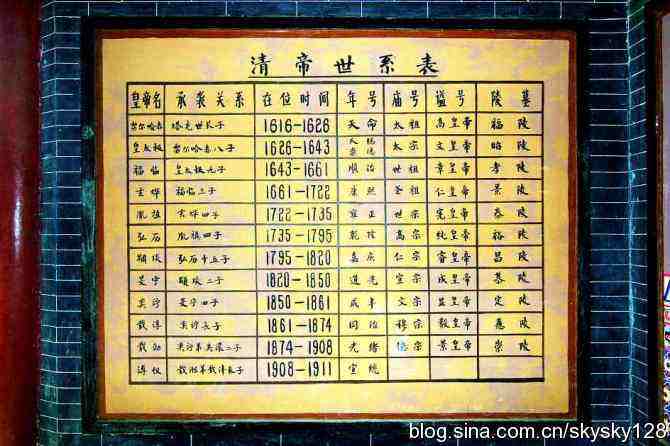 清帝世系表
皇帝名 承袭关系 在位时间 年号 庙号 谥号 陵墓
努尔哈赤 塔克世长子 1616-1626 天命 太祖 高皇帝 福陵
皇太极 努尔哈赤八子 1626-1643 天聪 崇德 太宗 文皇帝 昭陵
福临 皇太极九子 1643-1661 顺治 世祖 章皇帝 孝陵
玄烨 福临三子 1661-1722 康熙 圣祖 仁皇帝 景陵
胤禛 玄烨四子 1722-1735 雍正 世宗 宪皇帝 泰陵
弘历 胤禛四子 1735-1795 乾隆 高宗 纯皇帝 裕陵
颙琰 弘历十五子 1795-1820 嘉庆 仁宗 睿皇帝 昌陵
旻宁 颙琰二子 1820-1850 道光 宣宗 成皇帝 慕陵
奕詝 旻宁四子 1850-1861 咸丰 文宗 显皇帝 定陵
载淳 奕詝长子 1861-1874 同治 穆宗 毅皇帝 惠陵
载湉 奕詝弟奕譞二子 1874-1908 光绪 德宗 景皇帝 崇陵
溥仪 载湉弟载沣长子 1908-1911 宣统
blog.sina.com.cn/skysky128